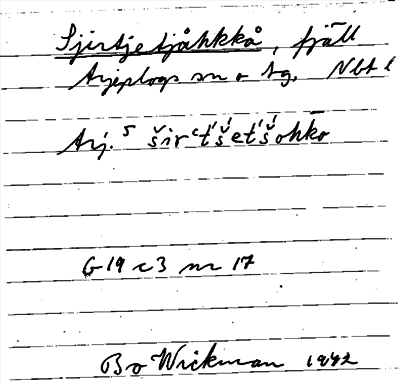 Sjirtjetjåhkkå, fjäll
Arjeplogs sn o tg. Nbt l
Arj. 5 širᶜt́š́et́š́ohko
G 19 c 3 nr 17
Bo Wickman 1942